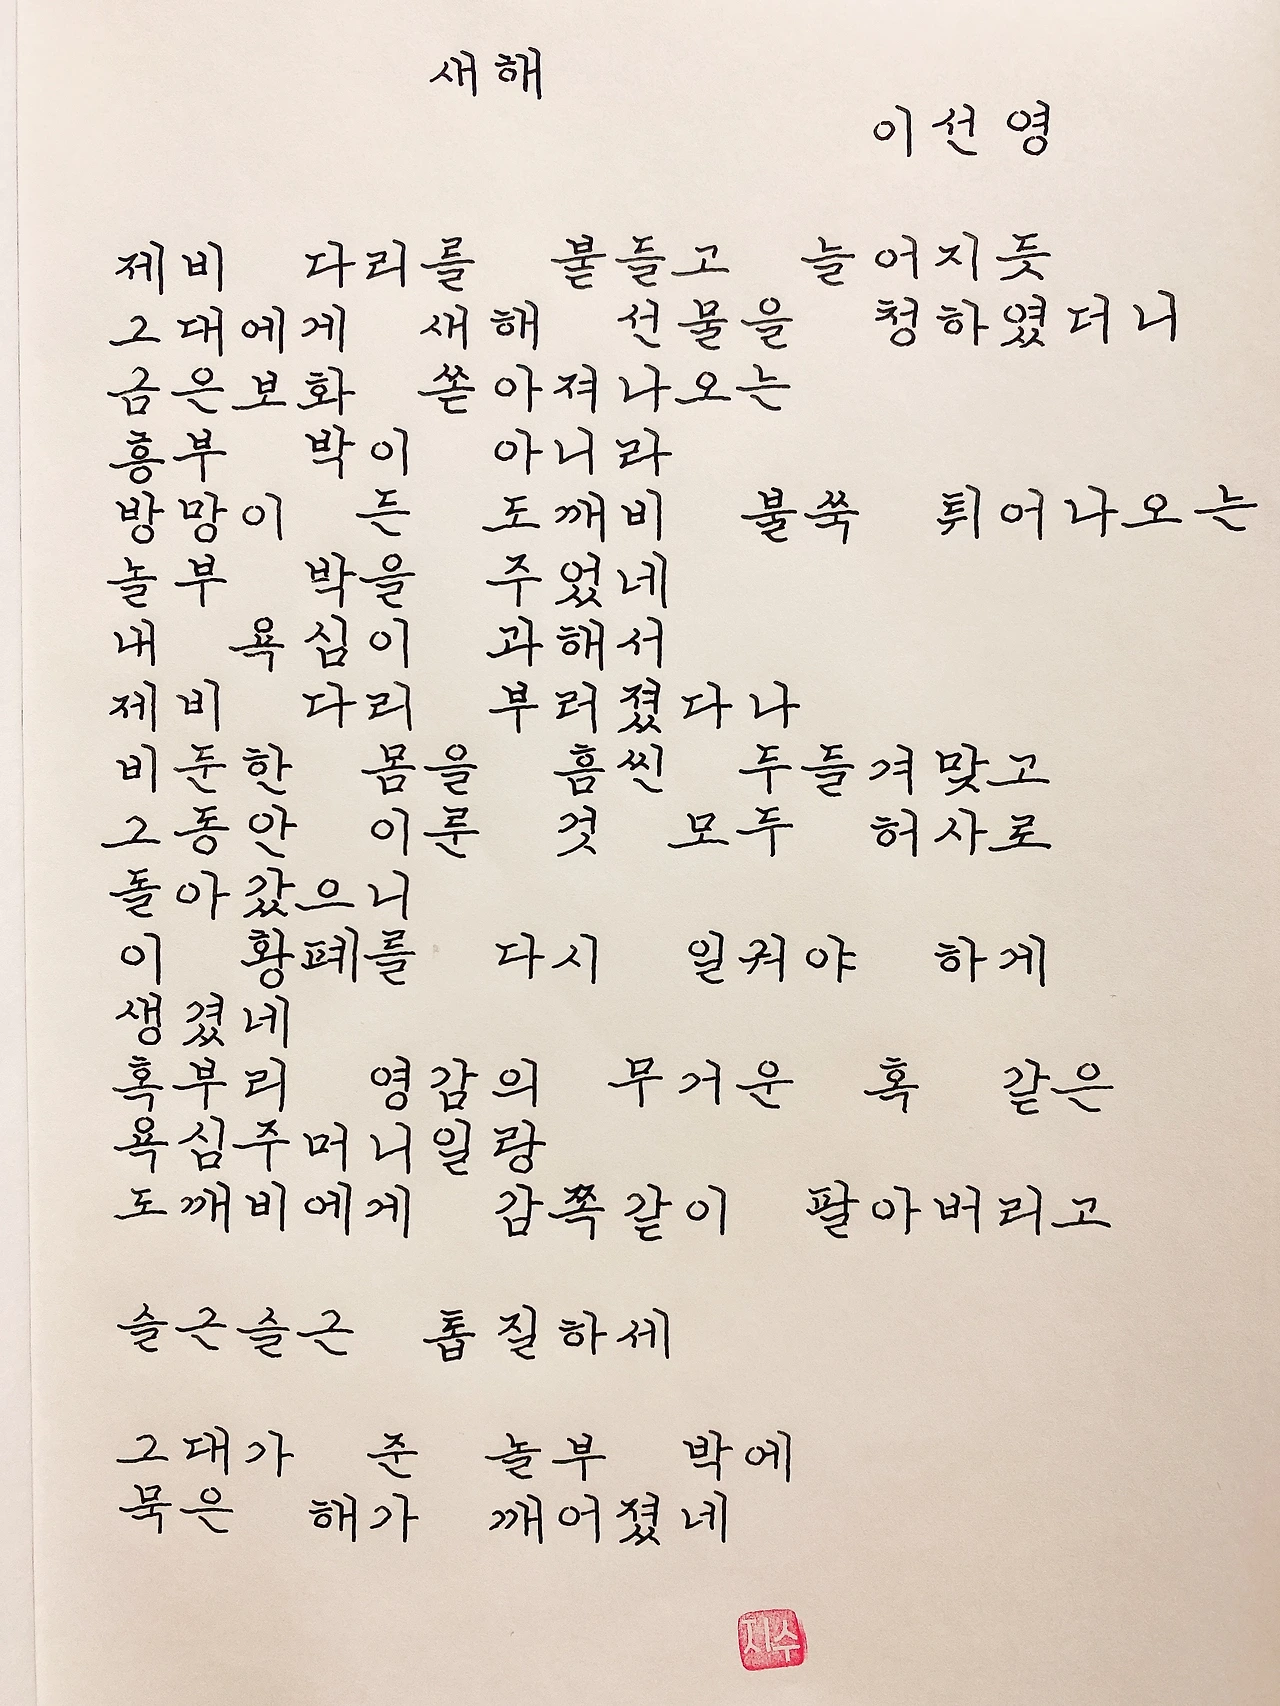 새해
이선영
제비 다리를 붙들고 늘어지듯
그대에게 새해 선물을 청하였더니
금은보화 쏟아져나오는
흥부 박이 아니라
방망이 든 도깨비 불쑥 튀어나오는
놀부 박을 주었네
내 욕심이 과해서
제비 다리 부러졌다나
비둔한 몸을 흠씬 두들겨맞고
그동안 이룬 것 모두 허사로
돌아갔으니
이 황폐를 다시 일궈야 하게
생겼네
혹부리 영감의 무거운 혹 같은
욕심주머니일랑
도깨비에게 감쪽같이 팔아버리고
슬근슬근 톱질하세
그대가 준 놀부 박에
묵은 해가 깨어졌네
지수